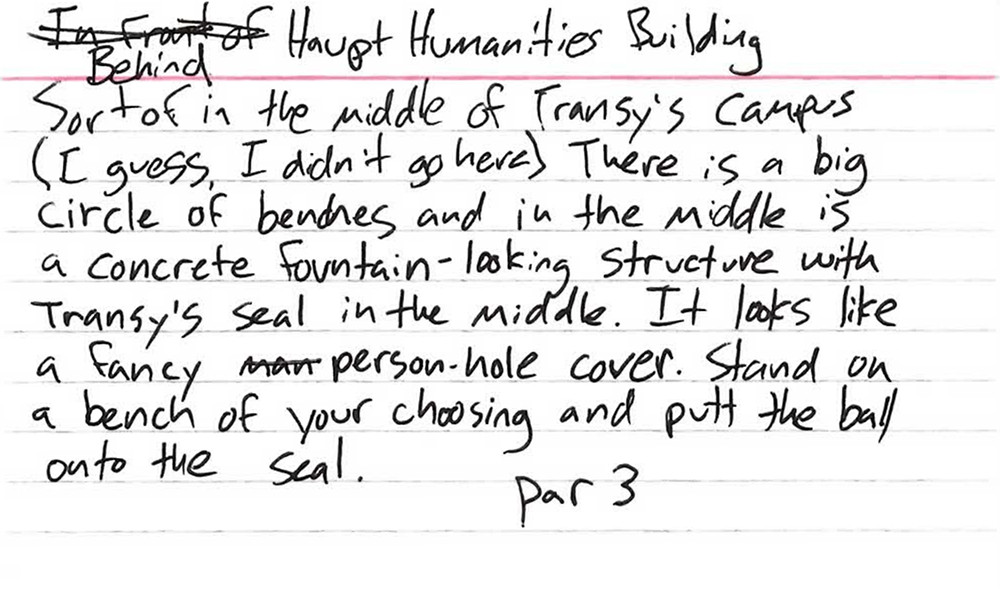 In Front of Haupt Humanities Building
Behind
Sort of in the middle of Transy's campus
(I guess, I didn't go here) There is a big
circle of benches and in the middle is
a concrete fountain-looking structure with
Transy's seal in the middle. It looks like
a fancy man person-hole cover. Stand on
a bench of your choosing and putt the ball
onto the seal.
Par 3